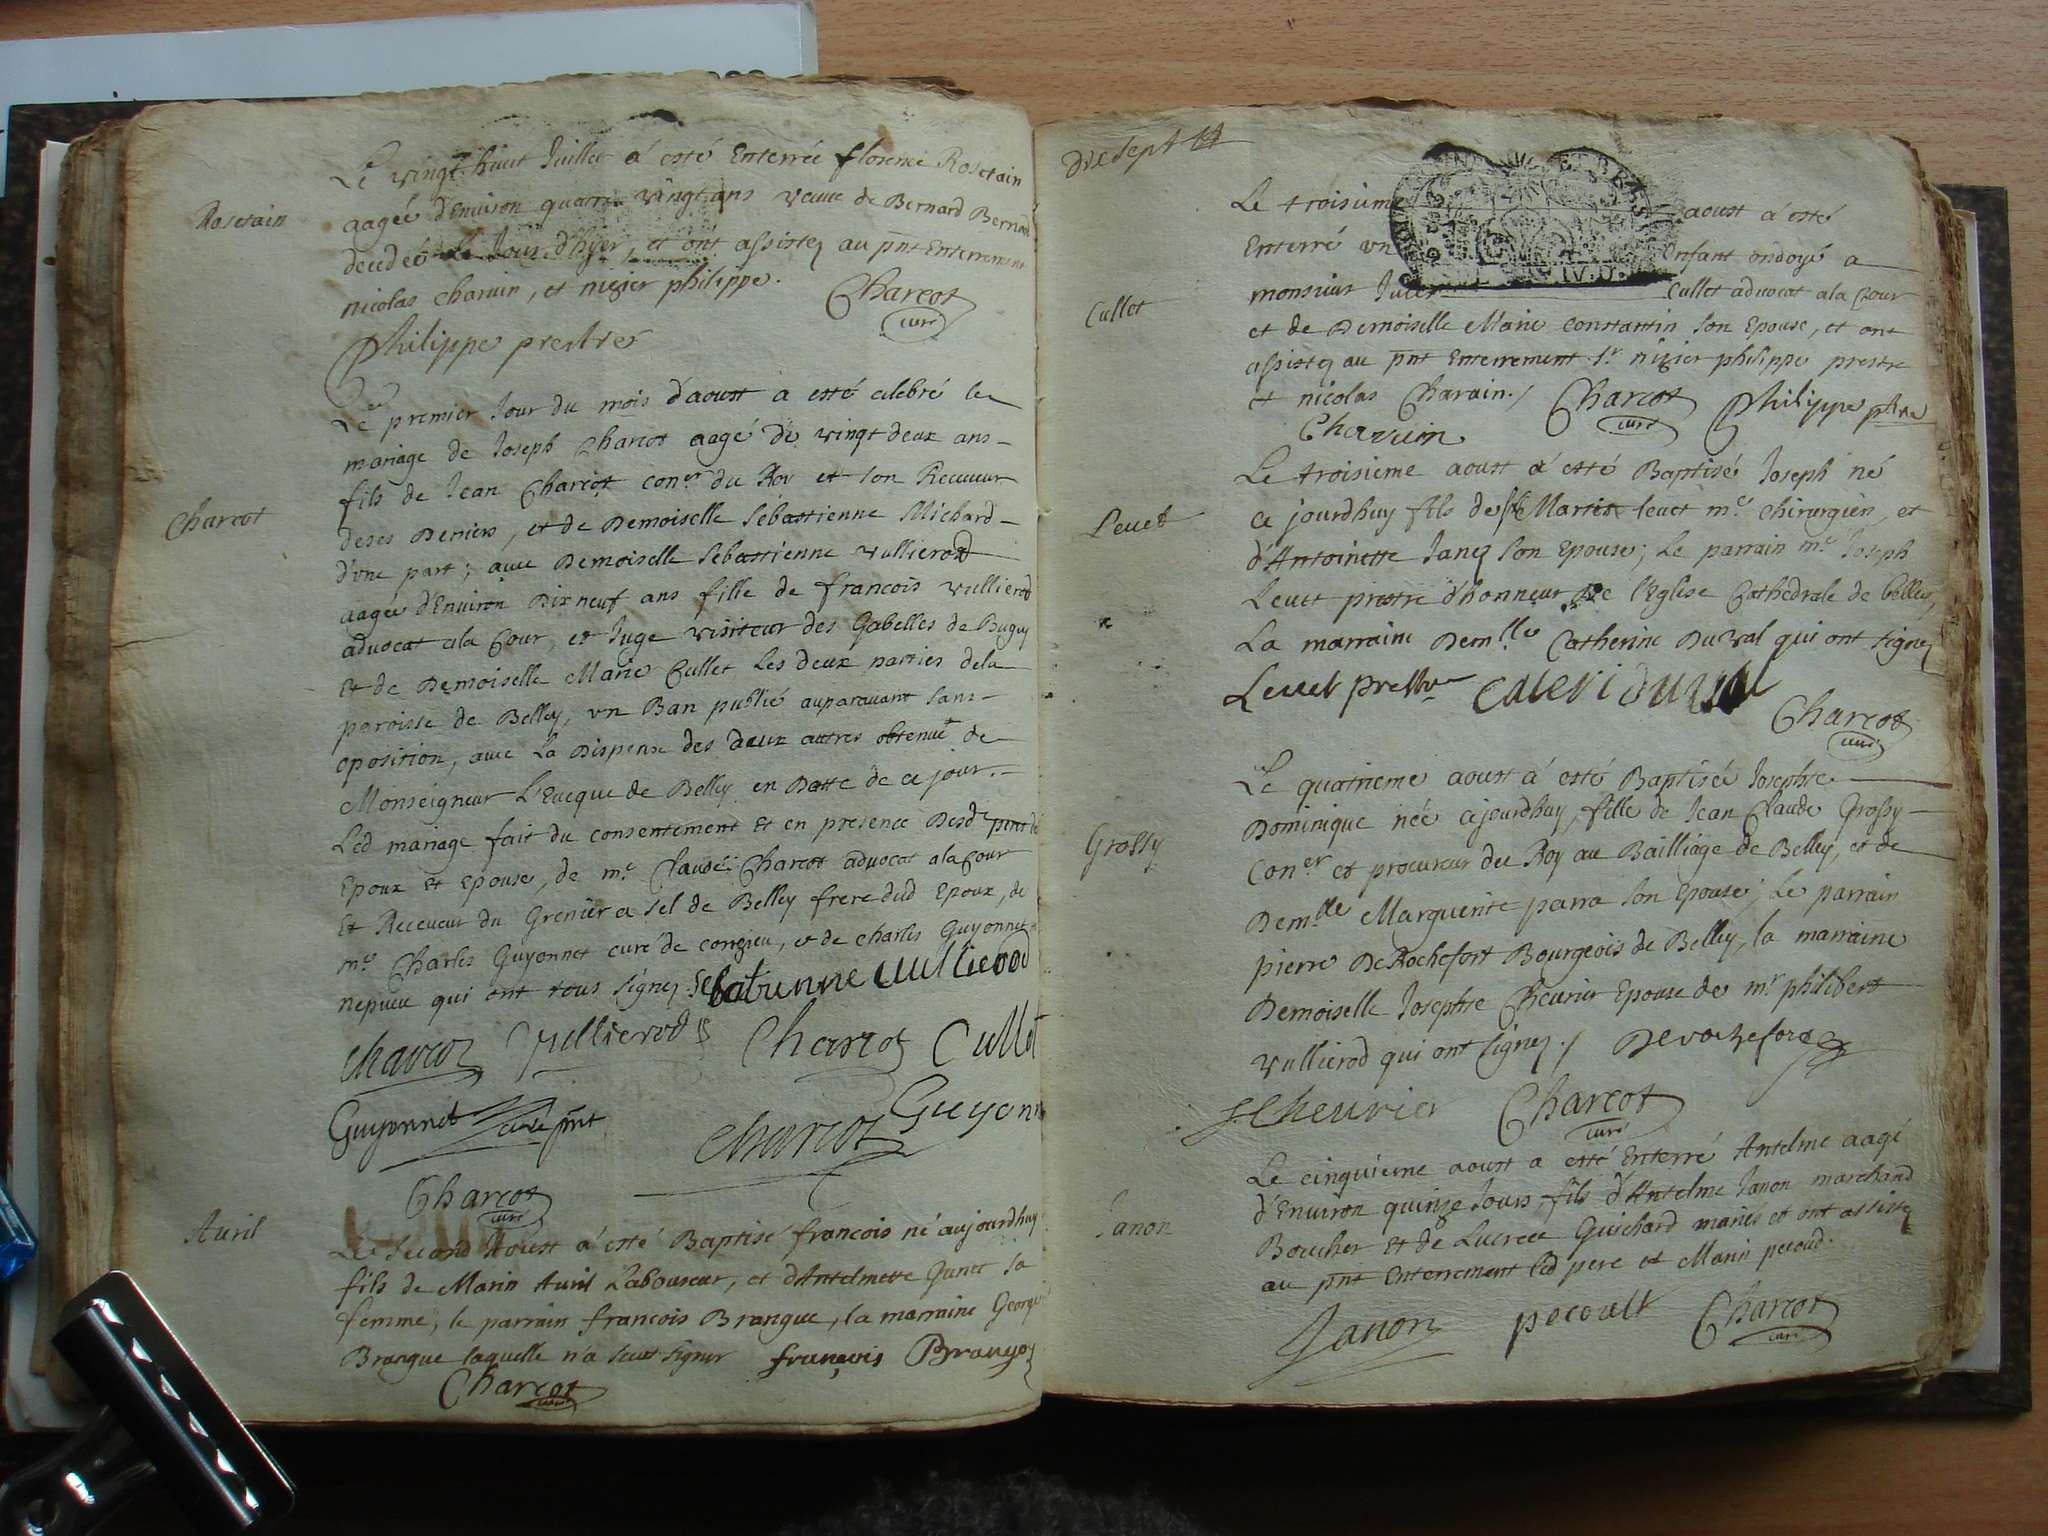 Rosetain
Le vingt huict Juillet á esté Enterrée florence Rosetain
aageé d'Environ quatre vingt ans veuve de Bernard Bernard
decedée le Jour d'hyer, et ont assistez au pnt Enterrement
nicolas charuin, et nizier philippe.
Charcot
curé
Philippe prestre
Charcot
Le premier Jour du mois d'aoust a esté celebré le
mariage de Joseph Charcot aagé de vingt deux ans
fils de Jean Charcot coner du Roy et son Receueur
deses Deniers, et de Demoiselle Sebastienne Michard
d'vne part; auec Demoiselle Sebastienne vullierod
aageé d'Environ Dix neuf ans fille de francois vullierod
aduocat ala Cour, et Juge visiteur des Gabelles de Bugey
Et de Demoiselle Marie Cullet Les deux parties dela
paroisse de Belley, vn Ban publié auparauant sans
oposition, auec La Dispense des deux autres obtenue de
Monseigneur L'Eueque de Belley en Datte de ce jour.
Led mariage fait du consentement Et en presence Desd
Epoux Et Epouse, de me Claude Charcot aduocat ala Cour
Et Receueur du Grenier a sel de Belley frere dud Epoux, de
me Charles Guyonnet curé de conzieu, et de charles Guyonnet
nepueu qui ont tous signez Sebatienne vullierod
Charcot Vullierod Charcot Cullet
Guyonnet curé pnt Charcot Guyonn
Charcot
curé
Auril
Le second Aoust á esté Baptisé francois né aujourdhuy
fils de Marin Auril Laboureur, et d'Antelmette Junet sa
femme, le parrain francois Brangue, la marraine George
Brangue laquelle n'a sceut signer françois Brangoz
Charcot
curé
Dix sept
Cullet
Le troisieme aoust á esté
Enterré vn Enfant ondoyé a
monsieur Cullet aduocat ala Cour
et de Demoiselle Marie constantin son Epouse, et ont
assistez au pnt Enterrement Sr nizier philippe prestre
et nicolas Charuin./ Charcot Philippe ptre
curé
Charuin
Leuet
Le troisieme aoust á esté Baptisé Joseph né
ce jourdhuy fils de Martin leuet me chirurgien, et
d'Antoinette Janez son Epouse; Le parrain me Joseph
Leuet prestre d'honneur De l'Eglise Cathedrale de belley,
La marraine Demlle Catherine Duval qui ont signez
Leuet prestre
Charcot
curé
Grossy
Le quatrieme aoust á esté Baptisée Josephte
Dominique née cejourdhuy, fille de Jean Claude Grossy
Coner et procureur du Roy au Bailliage de Belley, et de
Demlle Marguerite parra son Epouse; Le parrain
pierre De Rochefort Bourgeois de Belley, la marraine
Demoiselle Josephte Cheurier Epouse de mr philibert
vullierod qui ont signez./ Derochefort
J Cheurier Charcot
curé
Janon
Le cinquieme aoust a esté Enterré Antelme aagé
d'Environ quinze Jours, fils d'Antelme Janon marchand
Boucher Et de Lucrece Guichard mariés et ont assistez
au pnt Enterrement led pere et Marin pecoud.
Janon pecoult Charcot
curé